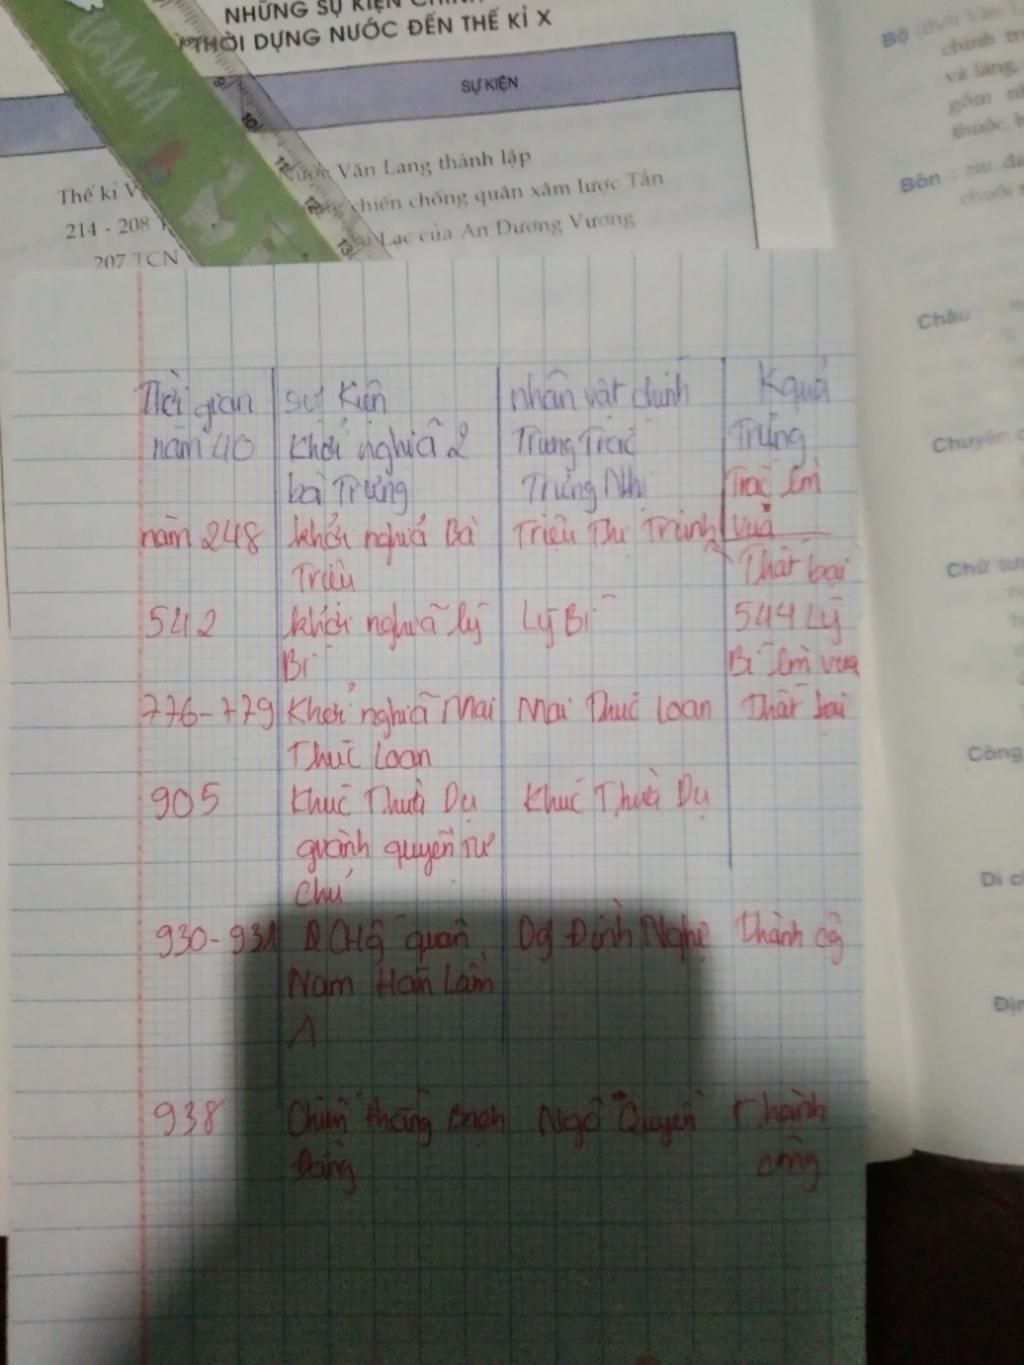 NHỮNG SỰ KIỆN
THỜI DỰNG NƯỚC ĐẾN THẾ KỈ X
SỰ KIỆN
GAMA
9
10
11
12
13
Thế kỉ V
Văn Lang thành lập
214 - 208
chiến chống quân xâm lược Tần
207 TCN
Lạc của An Dương Vương
Bộ
chính
và làng,
gồm
thuộc,
Bôn
Châu
Chuyên
Chữ
Công
Di
Thời gian | sự kiện | nhân vật chính | Kquả
năm 40 | Khởi nghĩa 2 | Trưng Trắc | Trưng
bà Trưng | Trưng Nhị | Trắc lm
năm 248 | khởi nghĩa Bà | Triệu Thị Trinh | vua
Triệu | Thất bại
542 | khởi nghĩa lý | Lý Bí | 544 Lý
Bí | Bí lm vua
776-779 | Khởi nghĩa Mai | Mai Thúc Loan | Thất bại
Thúc Loan
905 | Khúc Thừa Dụ | Khúc Thừa Dụ
giành quyền tự
chủ
930-931 | CHg quân | Dg Đình Nghệ | Thành cg
Nam Hán Lần
1
938 | Chiến thắng Bạch | Ngô Quyền | Thành
Đằng | công